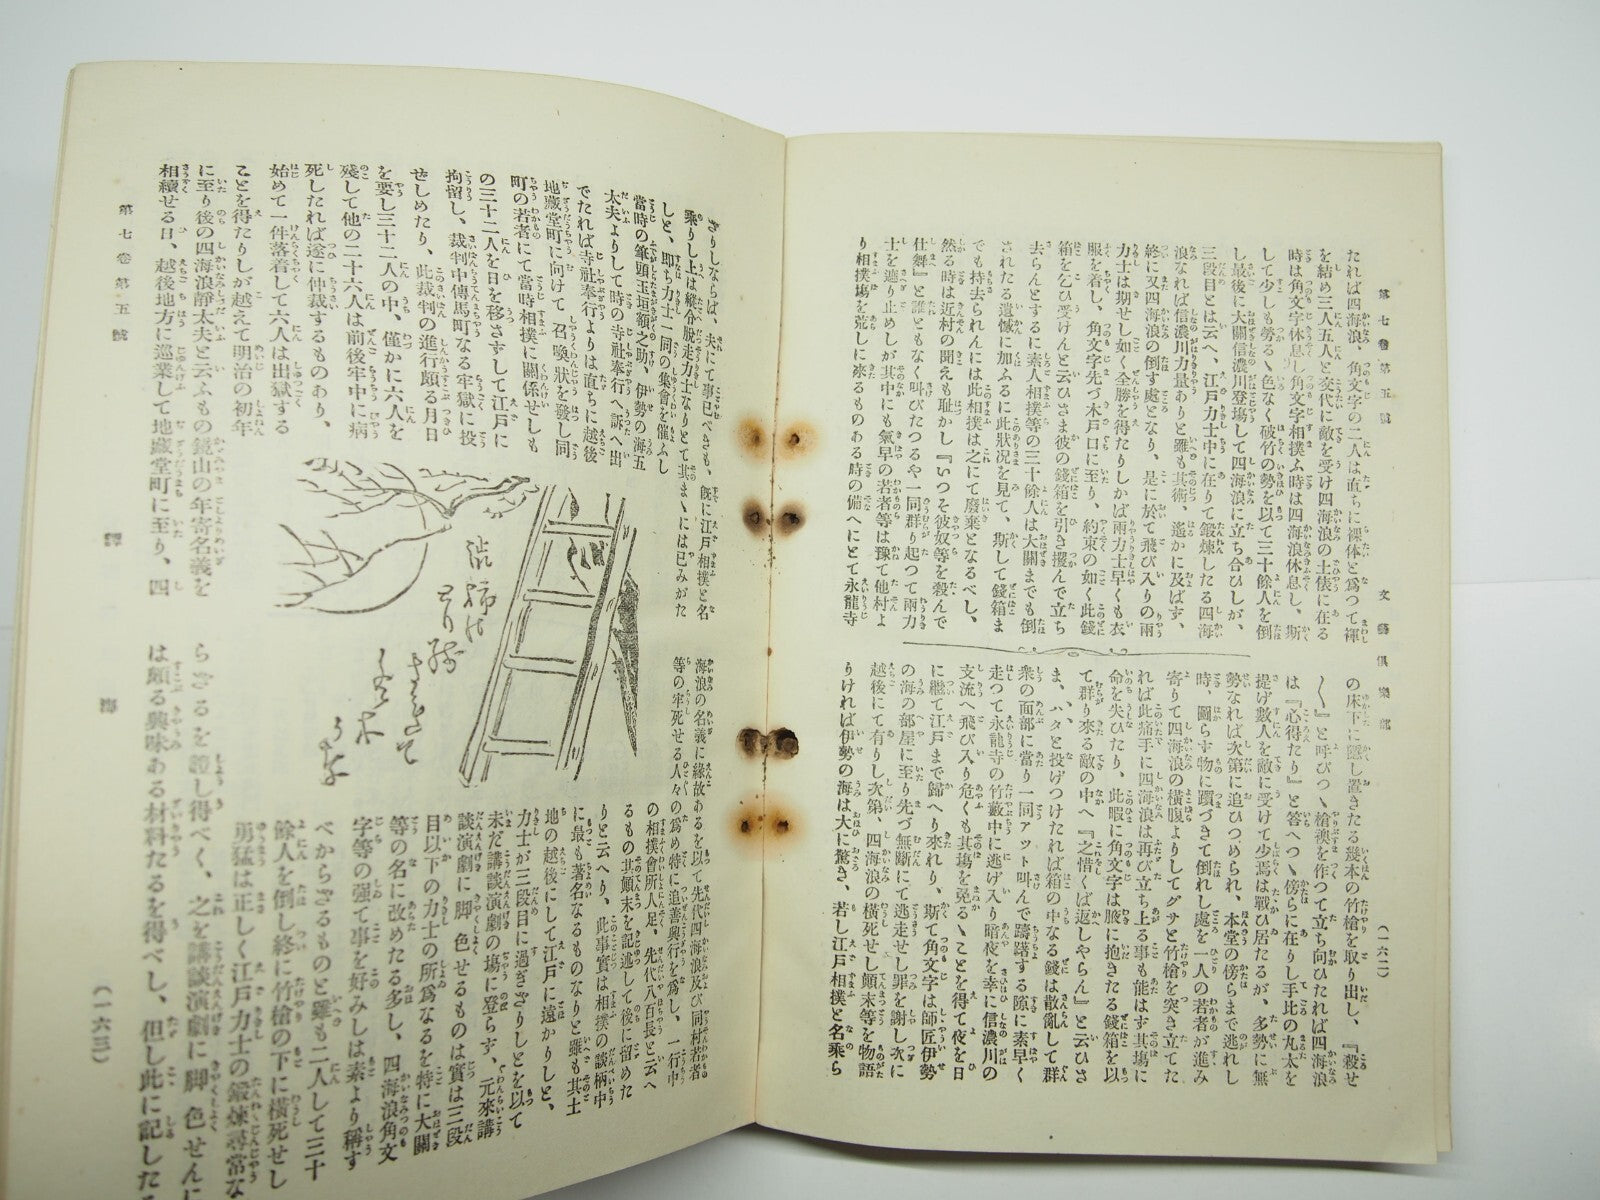 第七卷第五號
文藝俱樂部
(一六二)
たれば四海浪、角文字の二人は直ちに裸体と爲つて褌
を結め三人五人と交代に敵を受け四海浪の土俵に在る
時は角文字休息し角文字相撲ふ時は四海浪休息し、斯
して少しも勞るゝ色なく破竹の勢を以て三十餘人を倒
し最後に大關信濃川登場して四海浪に立ち合ひしが、
三段目とは云へ、江戸力士中に在りて鍛煉したる四海
浪なれば信濃川力量ありと雖も其術、遙かに及ばず、
終に又四海浪の倒す處となり、是に於て飛び入りの兩
力士は期せし如く全勝を得たりしかば兩力士早くも衣
服を着し、角文字先づ木戸口に至り、約束の如く此錢
箱を乞ひ受けんと云ひさま彼の錢箱を引き攫んで立ち
去らんとするに素人相撲等の三十餘人は大關までも倒
されたる遺憾に加ふるに此狀况を見て、斯して錢箱ま
でも持去られんには此相撲は之にて廢棄となるべし、
然る時は近村の聞えも耻かし『いつそ彼奴等を殺んで
仕舞』と誰ともなく叫びたつるや一同群り起つて兩力
士を遮り止めしが其中にも氣早の若者等は豫て他村よ
り相撲塲を荒しに來るものある時の備へにとて永龍寺
の床下に隱し置きたる幾本の竹槍を取り出し、『殺せ
〳〵』と呼びつゝ槍襖を作つて立ち向ひたれば四海浪
は『心得たり』と答へつゝ傍らに在りし手比の丸太を
提げ數人を敵に受けて少焉は戰ひ居たるが、多勢に無
勢なれば次第に追ひつめられ、本堂の傍らまで逃れし
時、圖らす物に躓づきて倒れし處を一人の若者が進み
寄りて四海浪の橫腹よりしてグサと竹槍を突き立てた
れば此痛手に四海浪は再び立ち上る事も能はす其塲に
命を失ひたり、此暇に角文字は腋に抱きたる錢箱を以
て群り來る敵の中へ『之惜くば返しやらん』と云ひさ
ま、ハタと投げつけたれば箱の中なる錢は散亂して群
衆の面部に當り一同アット叫んで躊躇する隙に素早く
走つて永龍寺の竹藪中に逃げ入り暗夜を幸に信濃川の
支流へ飛び入り危くも其塲を免るゝことを得て夜を日
に繼で江戸まで歸へり來れり、斯て角文字は師匠伊勢
の海の部屋に至り先づ無斷にて逃走せし罪を謝し次に
越後にて有りし次第、四海浪の橫死せし顛末等を物語
りければ伊勢の海は大に驚き、若し江戸相撲と名乘ら
ざりしならば、夫にて事已べきも、既に江戸相撲と名
乘りし上は縱令脱走力士なりとて其まゝには已みがた
しと、即ち力士一同の集會を催ふし
當時の筆頭玉垣額之助、伊勢の海五
太夫よりして時の寺社奉行へ訴へ出
でたれば寺社奉行よりは直ちに越後
地藏堂町に向けて召喚狀を發し同
町の若者にて當時相撲に關係せしも
の三十二人を日を移さすして江戸に
拘留し、裁判中傳馬町なる牢獄に投
せしめたり、此裁判の進行頗る月日
を要し三十二人の中、僅かに六人を
殘して他の二十六人は前後牢中に病
死したれば遂に仲裁するものあり、
始めて一件落着して六人は出獄する
ことを得たりしが越えて明治の初年
に至り後の四海浪靜太夫と云ふもの鏡山の年寄名義を
相續せる日、越後地方に巡業して地藏堂町に至り、四
海浪の名義に緣故あるを以て先代四海浪及び同村若者
等の牢死せる人々の爲め特に追善興行を爲し、一行中
の相撲會所人足、先代八百長と云へ
るもの其顛末を記述して後に留めた
りと云へり、此事實は相撲の談柄中
に最も著名なるものなりと雖も其土
地の越後にして江戸に遠かりしと、
力士が三段目に過ぎざりしとを以て
未だ講談演劇の塲に登らす、元來講
談演劇に脚色せるものは實は三段
目以下の力士の所爲なるを特に大關
等の名に改めたる多し、四海浪角文
字等の强て事を好みしは素より稱す
べからざるものと雖も二人して三十
餘人を倒し終に竹槍の下に橫死せし
勇猛は正しく江戸力士の鍛煉尋常な
らざるを證し得べく、之を講談演劇に脚色せんに
は頗る興味ある材料たるを得べし、但し此に記した
第七卷第五號
(一六三)